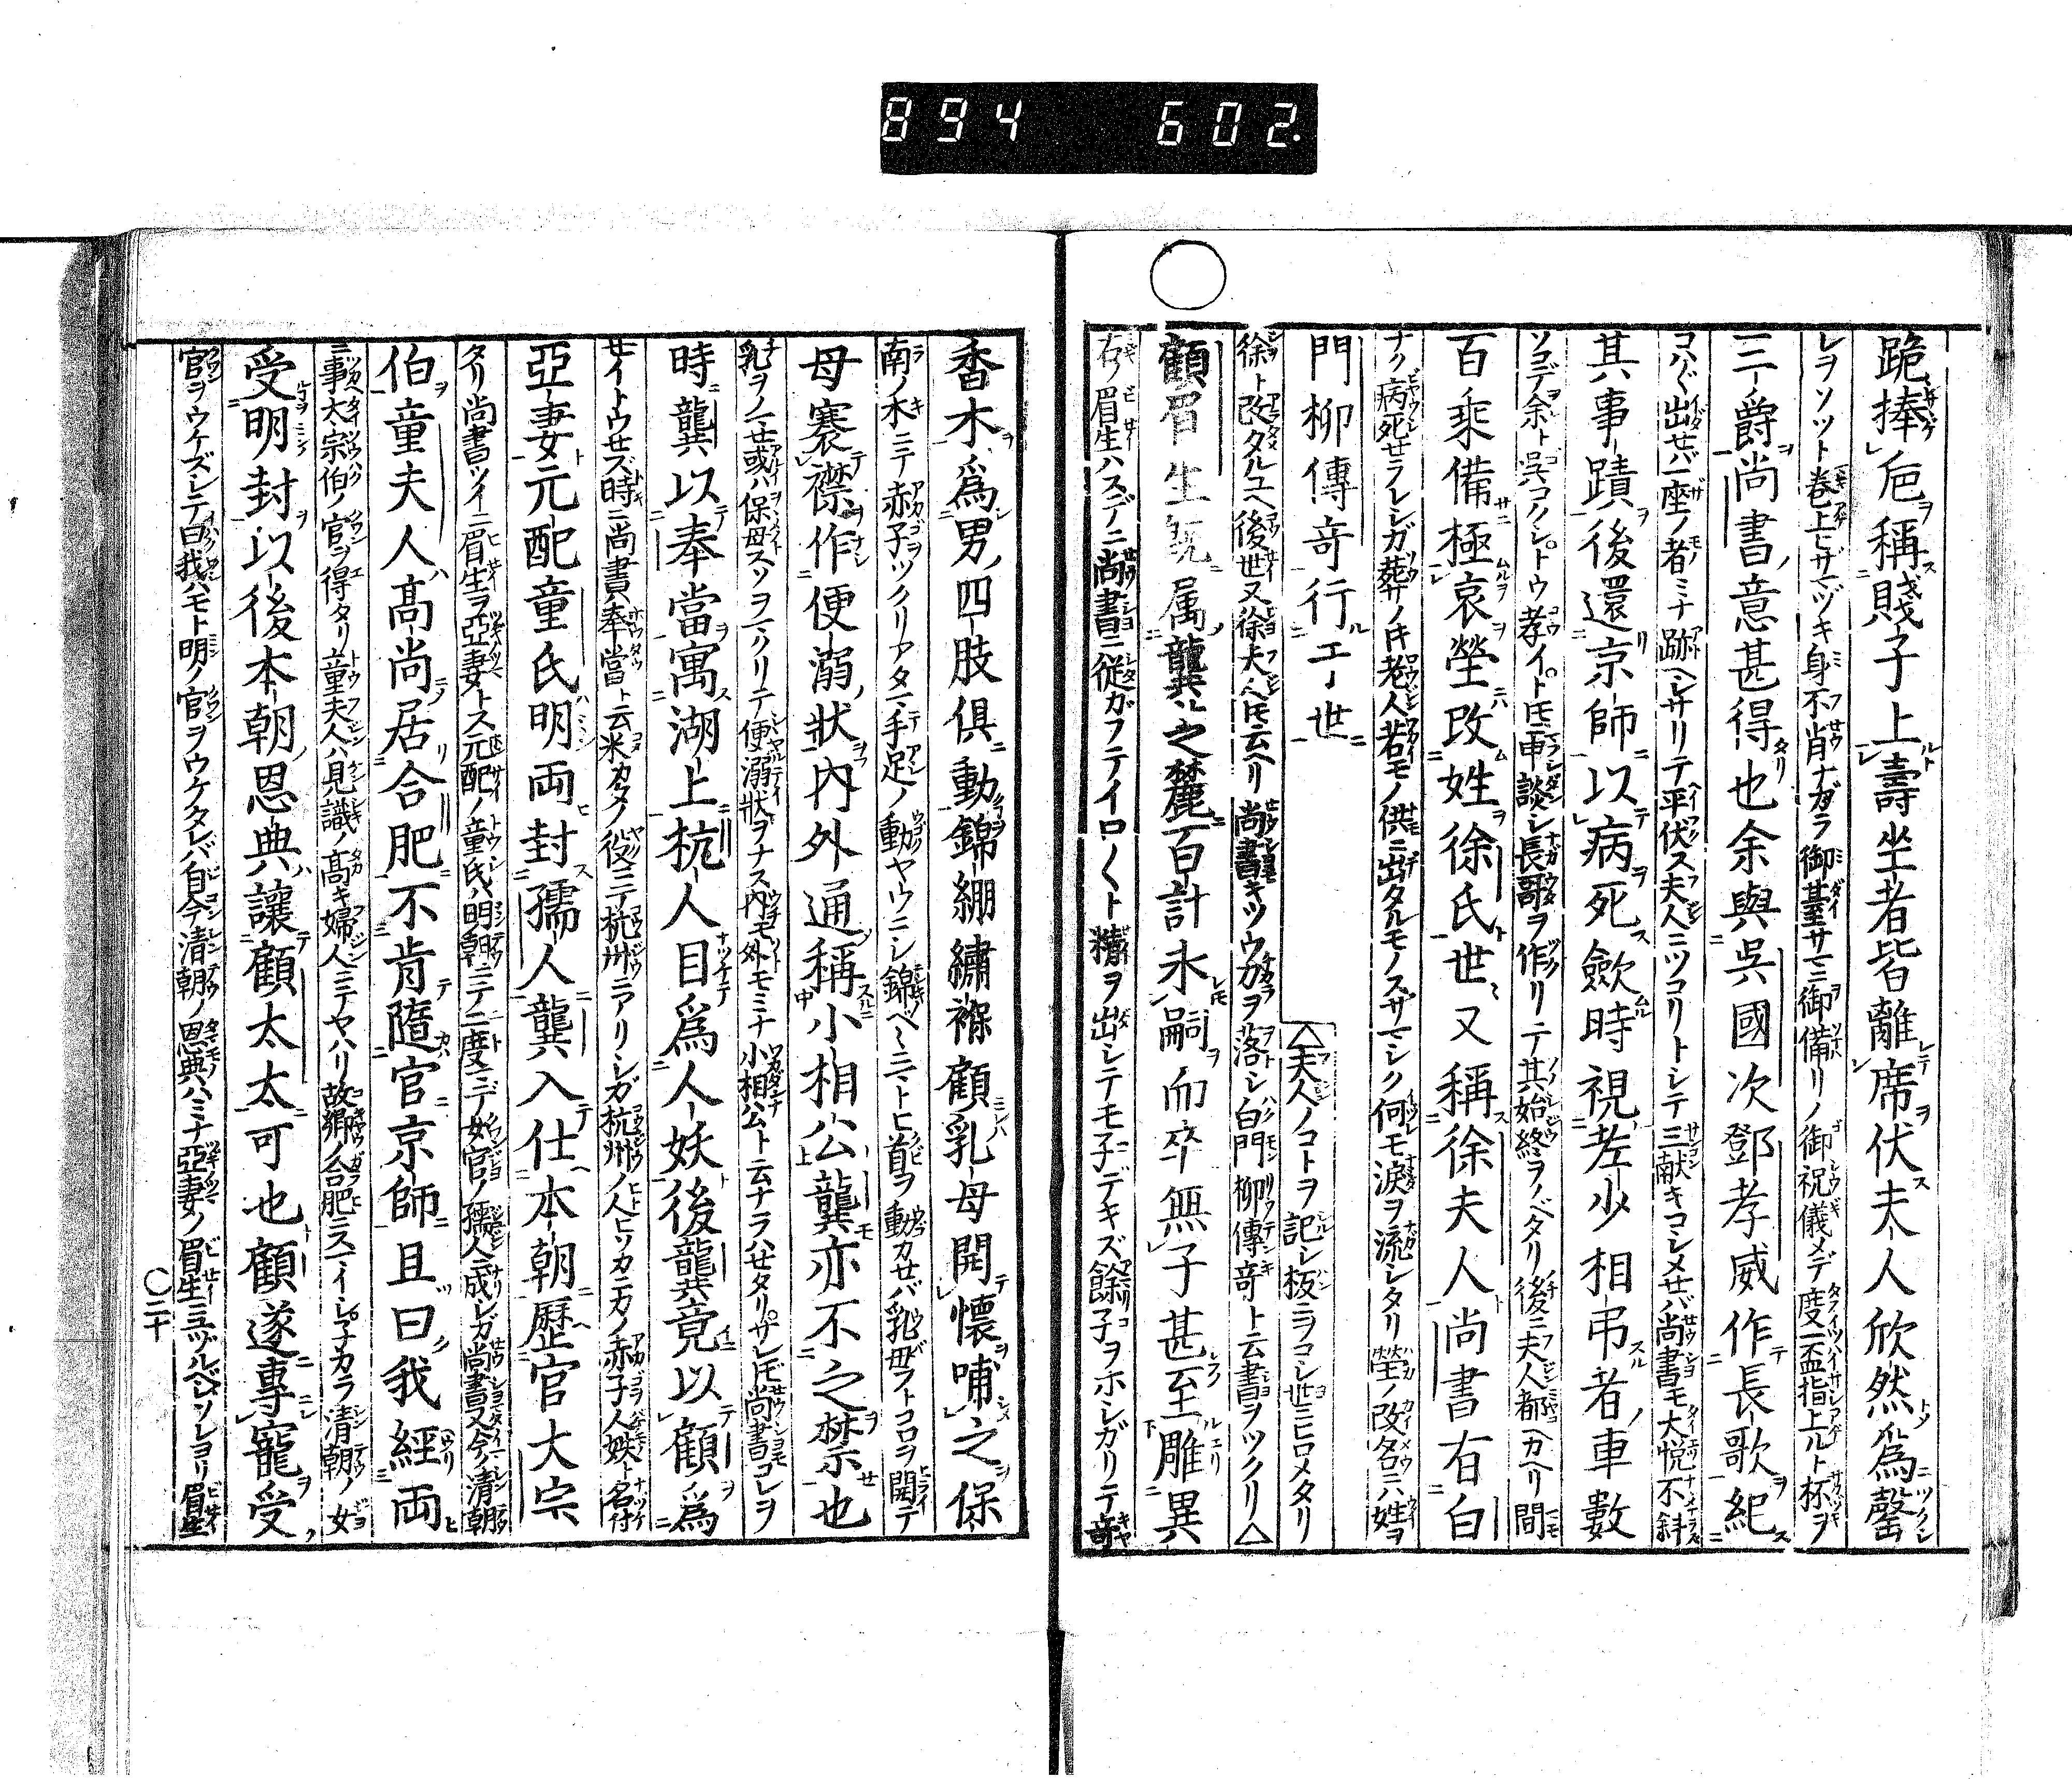 894 602.
跪捧巵稱賤子上壽坐者皆離席伏夫人欣然爲罄
レヲソツト巻上ヒザマヅキ身不肖ナガラ御臺サマニ御備リノ御祝儀メデ度一盃指上ルト杯ヲ
三爵尚書意甚得也余與吳國次鄧孝威作長歌紀
コハ〲出セバ一座ノ者ミナ跡ヘシサリテ平伏ス夫人ニツコリトシテ三献キコシメセバ尚書モ大悦不斜
其事蹟後還京師以病死歛時視老少相弔者車數
ソコデ余ト吳コクシトウ孝イト𪜈申談シ長歌ヲ作リテ其始終ヲノベタリ後ニ夫人都ヘカヘリ間
百乘備極哀塋改姓徐氏世又稱徐夫人尚書有白
ナク病死セラレシガ葬サノ𪜈老人若モノ供ニ出タルモノスサマシク何モ涙ヲ流シタリ塋ノ改名ニハ姓ヲ
門柳傳竒行エ世
△夫人ノコトヲ記シ板ニヲコシ世ニヒロメタリ
徐ト改タルユヘ後世又徐夫人𪜈云ヘリ尚書キツウカヲ落シ白門柳傳竒ト云書ヲツクリ△
顧眉生既属龔之麓百計永嗣而卒無子甚至雕異
右ノ眉生ハスデニ尚書ニ従ガフテイロ〱ト精ヲ出シテモ子デキズ餘子ヲホシガリテ竒
香木爲男四肢俱動錦繃繡褓顧乳母開懷哺之保
南ノ木ニテ赤子ヲツクリアタマ手足ノ動ヤウニシ錦ベヽニマトヒ首ヲ動カセバ乳母フトコロヲ開テ
母褰襟作便溺狀内外通稱小相公龔亦不之禁也
乳ヲノマセ或ハ保母スソヲマクリテ便溺狀ヲナス内モ外モミナ小相公ト云ナラハセタリサレ𪜈尚書コレヲ
時龔以奉當寓湖上杭人目爲人妖後龔竟以顧爲
セイトウセズ時ニ尚書奉當ト云米カタノ役ニテ杭州ニアリシガ杭州ノ人ヒソカニカノ赤子人妖ト名付
亞妻元配童氏明両封孺人龔入仕本朝歷官大宗
タリ尚書ツイニ眉生ヲ亞妻トス元配ノ童氏ハ明朝ニテ二度マデ女官ノ孺人ニ成シガ尚書又今ハ清朝
伯童夫人髙尚居合肥不肯隨官京師且曰我經両
ニ事大宗伯ノ官ヲ得タリ童夫人ハ見識ノ髙キ婦人ニテヤハリ故郷ノ合肥ニスマイシテナカラ清朝ノ女
受明封以後本朝恩典讓顧太太可也顧遂專寵受
官ヲウケズシテ曰我ハモト明ノ官ヲウケタレバ自今清朝ノ恩典ハミナ亞妻ノ眉生ニユヅルベシソレヨリ眉生
〇二十